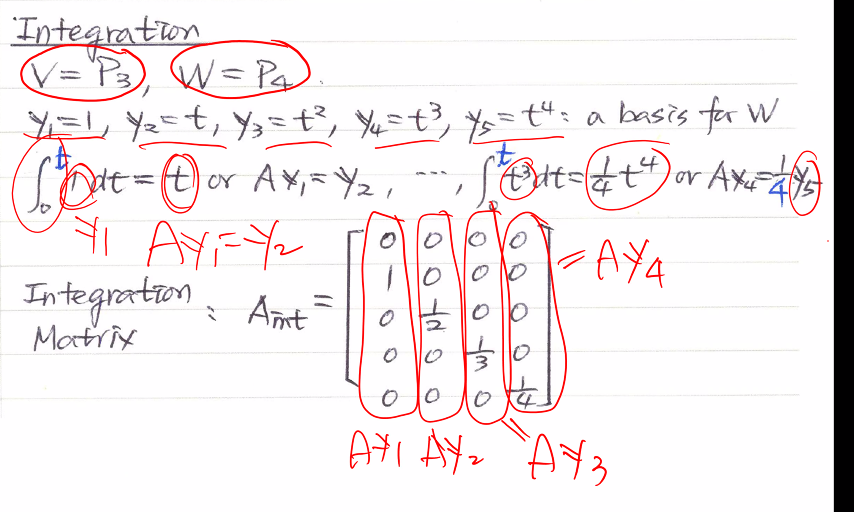 Integration
V = P₃, W = P₄
y₁=1, y₂=t, y₃=t², y₄=t³, y₅=t⁴: a basis for W
∫₀ᵗ 1dt = t or Ax₁=y₂, ..., ∫₀ᵗ t³dt = 1/4 t⁴ or Ax₄=1/4 y₅
y₁ Ay₁=y₂
0 0 0 0 = Ay₄
1 0 0 0
Integration Matrix : Aint = 0 1/2 0 0
0 0 1/3 0
0 0 0 1/4
Ay₁ Ay₂ = Ay₃